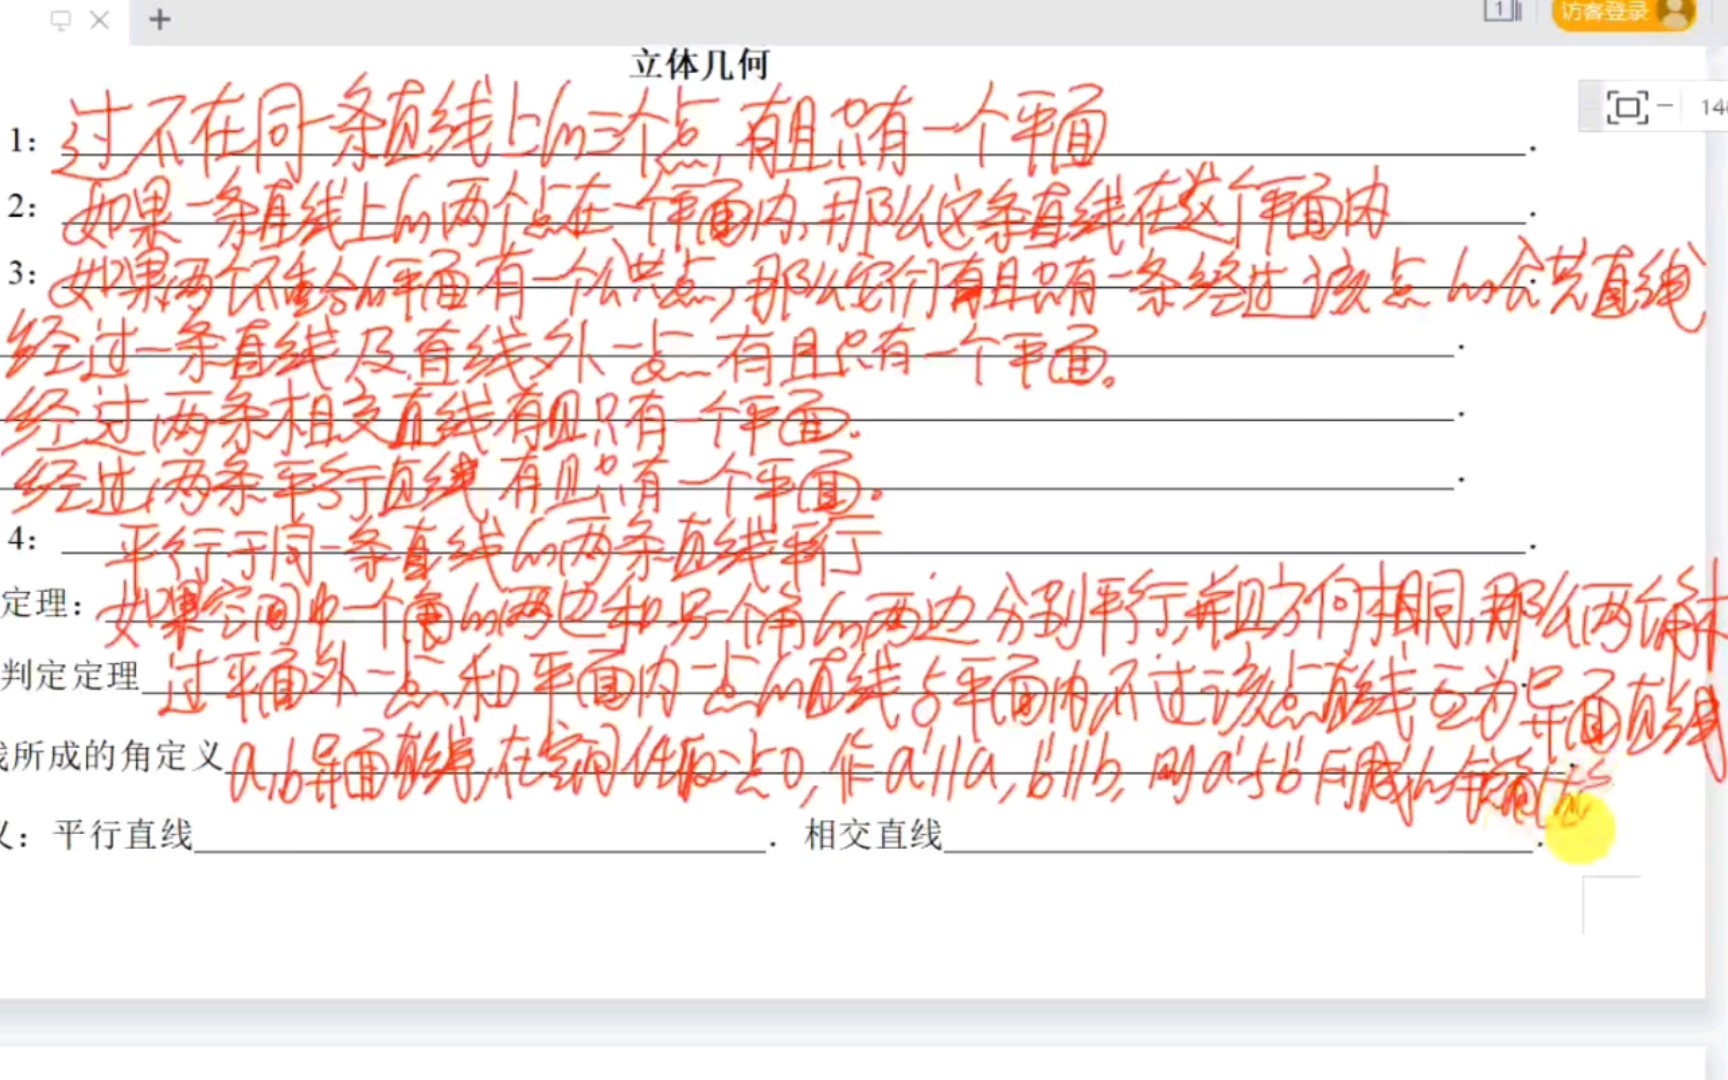 1
访客登录
立体几何
1：过不在同一条直线上的三个点，有且只有一个平面.
140
2：如果一条直线上的两个点在一个平面内，那么这条直线在这个平面内.
3：如果两个不重合的平面有一个公共点，那么它们有且只有一条经过该点的公共直线
经过一条直线及直线外一点有且只有一个平面。.
经过两条相交直线有且只有一个平面。.
经过两条平行直线有且只有一个平面。.
4：平行于同一条直线的两条直线平行.
定理：如果空间中一个角的两边和另一个角的两边分别平行，并且方向相同，那么两个角
判定定理 过平面外一点和平面内一点的直线与平面内不过该点直线互为异面直线
所成的角定义 a,b异面直线，在空间任取一点O，作a'∥a，b'∥b，则a'与b'所成的
义：平行直线. 相交直线.